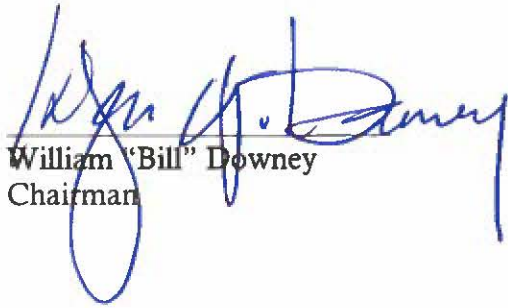 William “Bill” Downey
Chairman